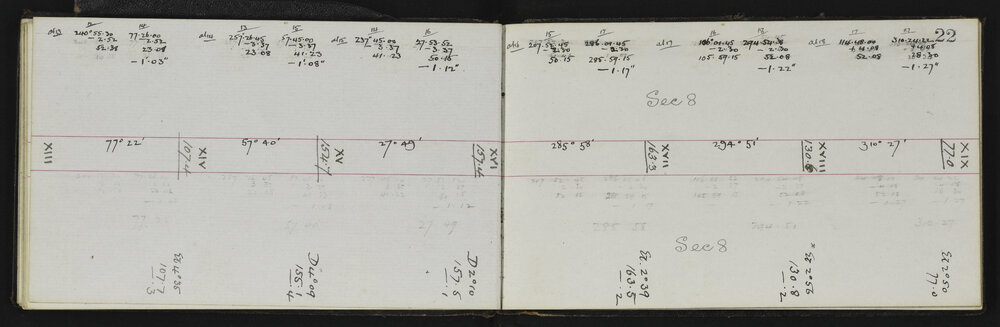 22
13 14
at 13 240° 55.30 77.26.00
- 2.52 - 2.52
52.38 23.08
- 1'.03"
14 15
at 14 257.26.45 57.45.00
- 3.37 - 3.37
23.08 41.23
- 1'.08"
14 16
at 15 237°45.00 27.53.52
- 3.37 - 3.37
41.23 50.15
- 1.12"
15 17
at 16 207.52.45 286.01.45
- 2.30 - 2.30
50.15 285.59.15
- 1.17"
16 18
at 17 106°01.45 294.54.38
- 2.30 - 2.30
105.59.15 52.08
- 1.22"
17
at 18 114.48.00 310.24.22
+ 4.08 + 4.08
52.08 28.30
- 1.27"
Sec 8
XIII 77° 22' 107.4 XIV 57° 40' 154.7 XV 27° 49' XVI 157.4
285° 58' XVII 163.3 294° 51' XVIII 130.6 310° 27' XIX 77.0
Sec 8
El 4°35
107.7
- .3
D 4°09
155.1
- .4
D 2°10
157.5
- .1
El. 2°39
163.5
- .2
* El 2°56
130.8
- .2
El 2°50
77.0